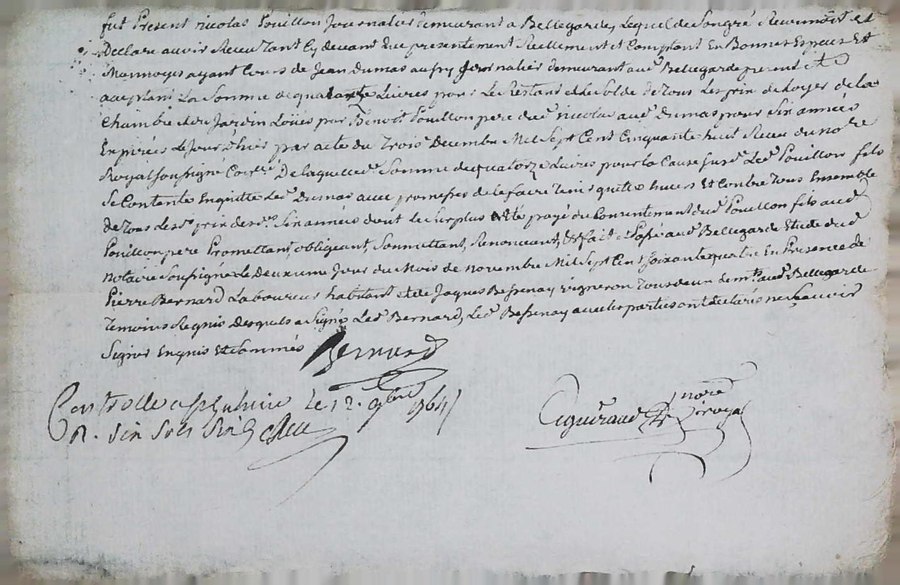 fut Present nicolas Pouillon Journalier demeurant a Bellegarde, Lequel de Son gré a Reconnu et
Declare avoir Receu tant Cy devant que presentement Reellement et Comptant En Bonnes Especes Et
Monnoyes ayant Cours de Jean Dumas aussy Journalier demeurant aud Bellegarde present et
acceptant La Somme de quatorze Livres pour Le Restant et Le Solde de tous Les prix de Loyer de La
Chambre et du Jardin Loüés par Benoit Pouillon pere dud nicolas aud Dumas pour Six années
Expirées Le Jour d'hier par acte du Trois Decembre Mil Sept Cent Cinquante huit Receu du nore
Royal Soussigné de Laquelle Somme de quatorze Livres pour La Cause Susd Led Pouillon fils
Se Contente En quitte Led Dumas avec promesses de Le faire tenir quitte Envers Et Contre tous Ensemble
de tous Les prix desd Six années dont Le Surplus a Eté payé du Consentement dud Pouillon fils aud
Pouillon pere Promettant, obligeant, Soumettant, Renonceant, &c fait et Passé aud Bellegarde Etude dud
notaire Soussigné Le deuxieme Jour du Mois de novembre Mil Sept Cent Soixante quatre En Presence de
Pierre Bernard Laboureur habitant et de Jaques Bessenay vigneron tous deux dem aud Bellegarde
temoins Requis desquels a Signé Led Bernard, Led Bessenay avec les parties ont declaré ne Sçavoir
Signer Enquis Et Sommés Bernard
Controlle a Le 12 9bre 1764
R. Six Sols Six
nore royal